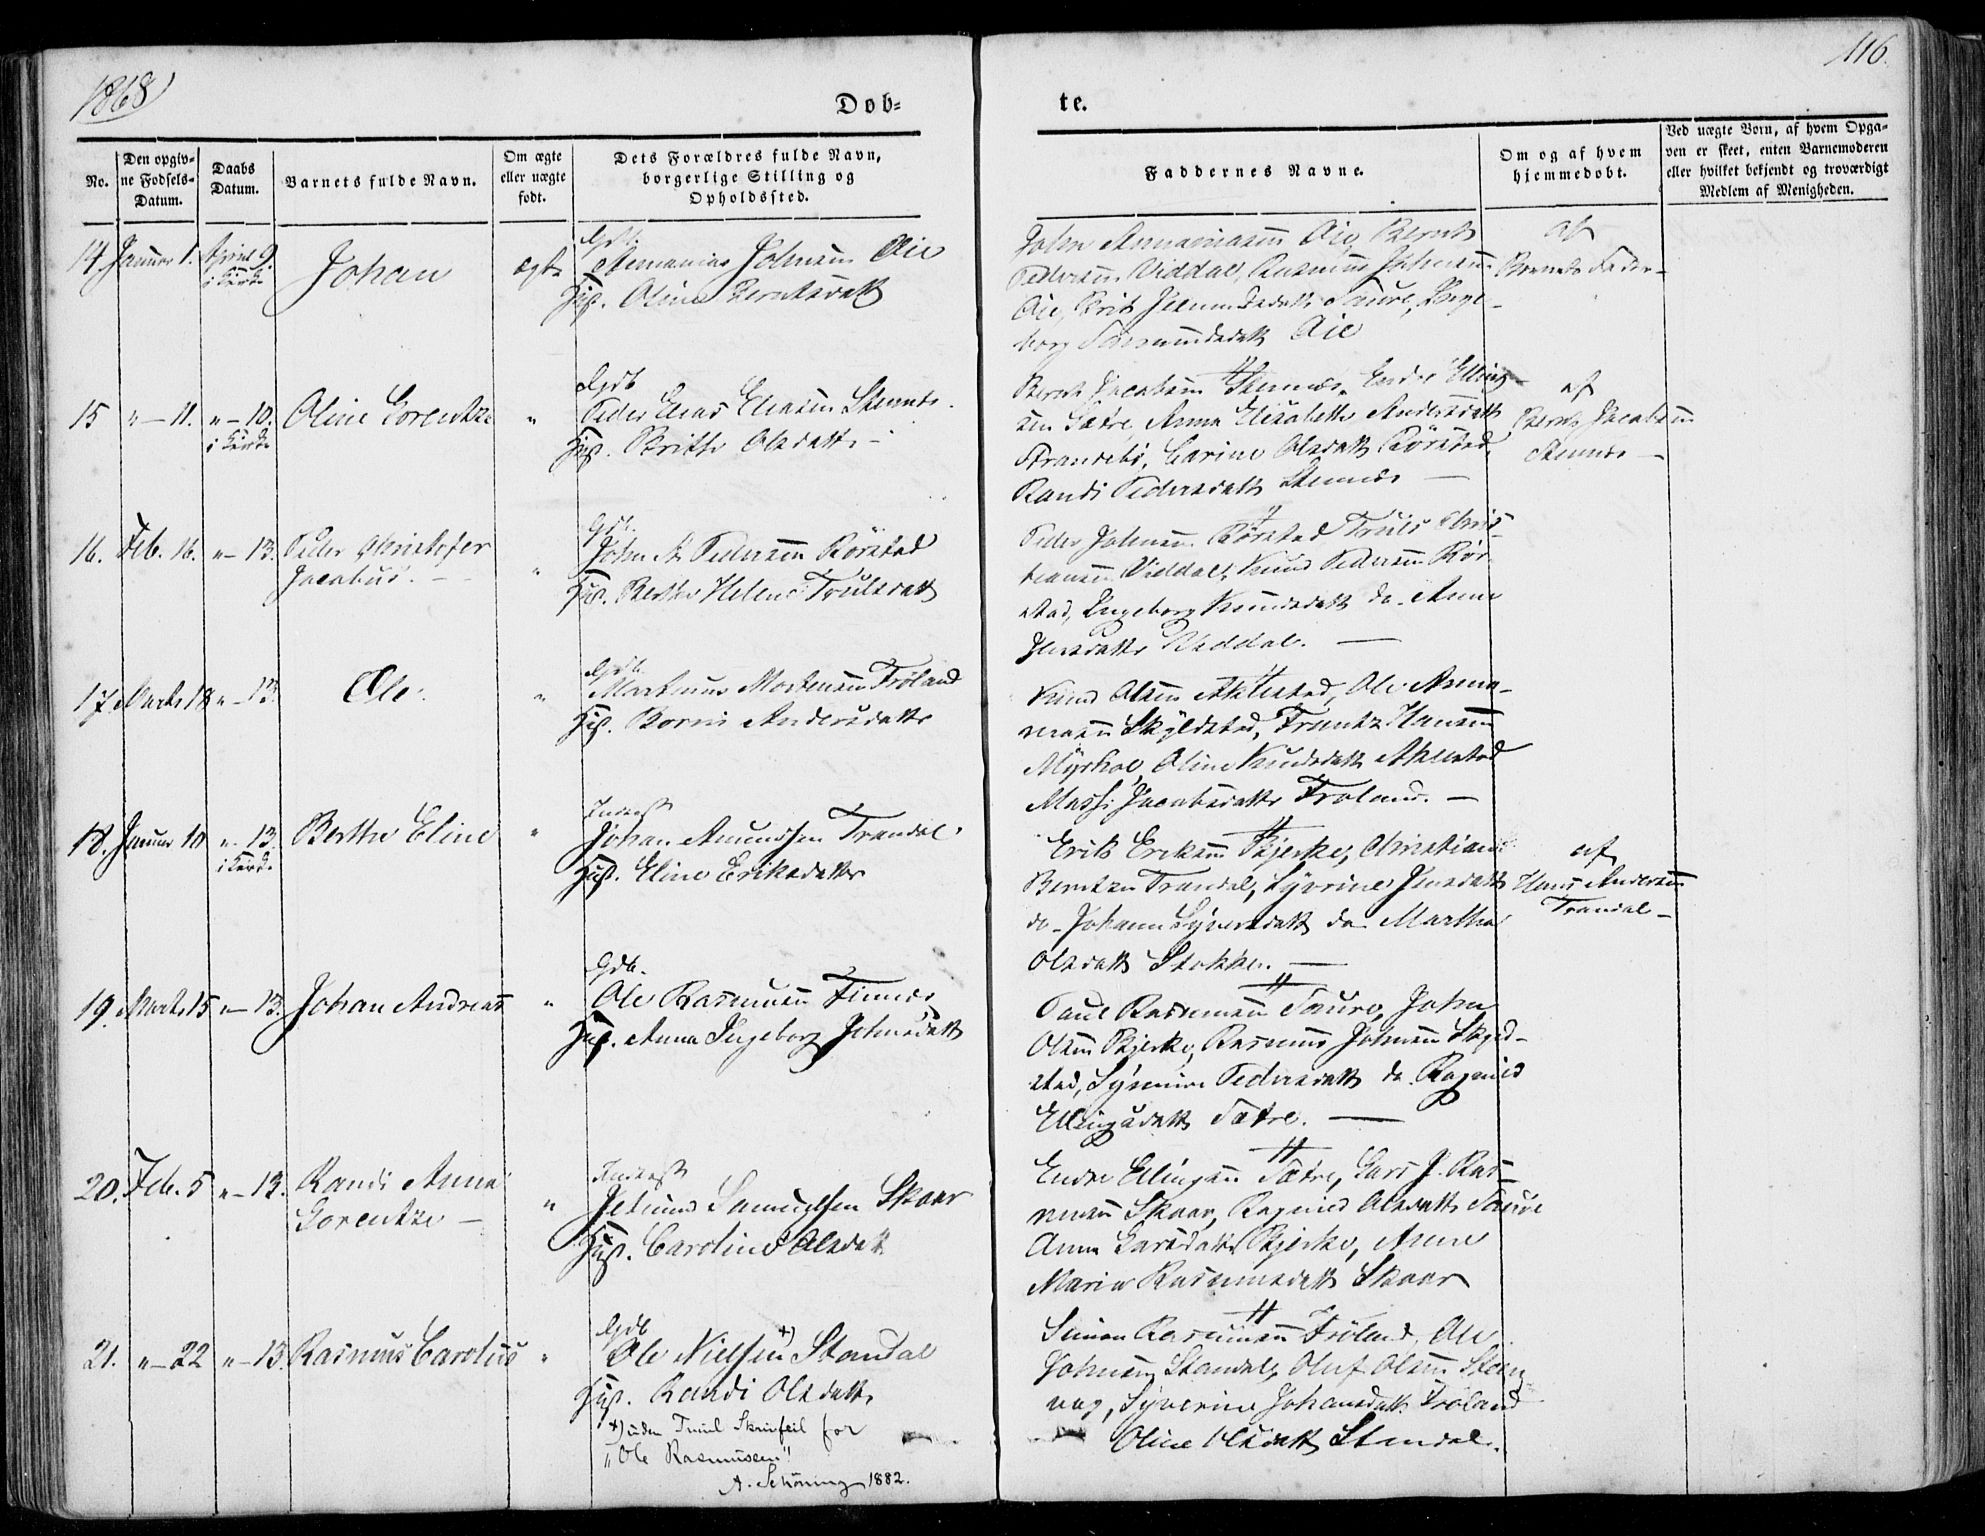 1868
116.
Døb-
te.
No.
Den opgiv-
ne Fødsels-
Datum.
Daabs
Datum.
Barnets fulde Navn.
Om ægte
eller uægte
født.
Dets Forældres fulde Navn,
borgerlige Stilling og
Opholdssted.
Faddernes Navne.
Om og af hvem
hjemmedøbt.
Ved uægte Børn, af hvem Opga-
ven er skeet, enten Barnemoderen
eller hvilket bekjendt og troværdigt
Medlem af Menigheden.
14. Januar 1. April 9.
i Kirke
Johan
ægte
Gdb.
Annanias Johnsen Øie
Hus. Oline Berntsdatt
John Annaniasen Øie, Bernt
Pedersen Viddal, Rasmus Johnsen
Øie, Brit Jetmundsdatt Saure, Inge-
borg Jetmundsdatt Øie
af
Barnets Fader
15 " - 11. " - 10.
i Kirke
Oline Lorentze
"
Gdb
Peder Elias Eliasen Stennes.
Hus. Brithe Olsdatt -
Bernt Jacobsen Stennes, Endre Elling-
sen Sætre, Anne Elisabeth Andersdatt
Strandebø, Carine Olsdatt Rørstad,
Randi Pedersdatt Stennes
af
Bernt Jacobsen
Stennes -
16. Feb. 16. " - 13.
Peder Christofer
Jacobus. -
"
Gdb.
John A. Pedersen Rørstad
Hus. Berthe Helene Trulsdatt
Peder Johnsen Rørstad Truls Chris-
tiansen Viddal, Knud Pedersen Rør-
stad, Ingeborg Knudsdatt do. Anne
Jensdatt Viddal. -
17. Marts 18 " - 13.
Ole.
"
Gdb.
Martinus Mortensen Frøland
Hus. Borni Andersdatt
Knud Olsen Aklestad, Ole Asme-
mann Skyldstad, Frantz Hansen
Myrhol, Oline Knudsdatt Aklestad
Massi Jacobsdatt Frøland. -
18. Januar 10 " - 13.
i Kirke
Berthe Eline
"
Inderst
Johan Amundsen Trandal.
Hus. Eline Eriksdatter
Erik Eriksen Bjerke, Christian
Berntsen Trandal, Syvrine Jensdatt
do - Johanne Syversdatt do Marthe
Olsdatt Stokke. -
af
Hans Andersen
Trandal -
19. Marts 15 " - 13.
Johan Andreas
"
Gdb.
Ole Rasmussen Finnes
Hus. Anna Ingeborg Johnsdatt
Paul Rasmussen Saure, John
Olsen Bjerke, Rasmus Johnsen Skyld-
stad, Syverine Pedersdatt do. Ragnild
Ellingsdatt Sætre. -
20. Feb. 5 " - 13.
Randi Anne
Lorentze -
"
Inderst
Jetmund Samuelsen Skaar
Hus. Caroline Olsdatt
Endre Ellingsen Sætre, Lars J. Ras-
mussen Skaar, Ragnild Olsdatt Saure
Anne Larsdatt Bjerke, Anne
Marie Rasmusdatt Skaar
21. " - 22 " - 13.
Rasmus Carolius
"
Gdb
Ole Nielsen +) Standal
Hus. Randi Olsdatt.
+) uden Tvivl Skrivfeil for
"Ole Rasmussen"
A. Schöning 1882.
Simon Rasmussen Frøland, Ole
Johnsen Standal, Oluf Olsen Steen-
vaag, Syverine Johansdatt Frøland
Oline Olsdatt Standal.